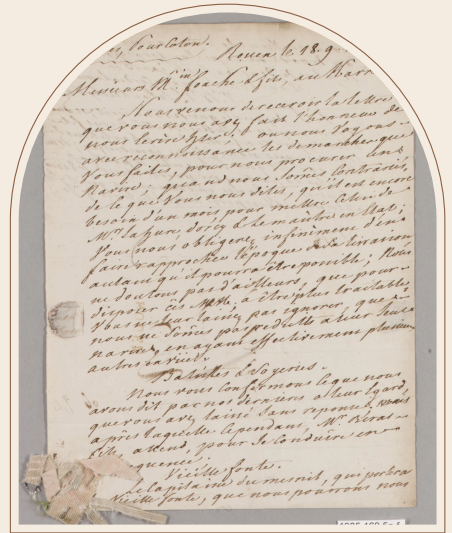 Pour Coton.
Rouen le 18. 9
Messieurs M.in foache & fils, au Havre
Nous venons de recevoir la lettre
que vous nous avez fait l'honneur de
nous écrire hier; ou nous voyons
avec reconnaissance les demarches que
vous faites, pour nous procurer un
Navire; quand nous somes contrariés
de ce que vous nous dites, qu'il est encore
besoin d'un mois, pour mettre celui de
Mrs le maitre en Etat;
Vous nous obligerez infiniment d'en
faire rapprocher l'époque de la livraison
autant qu'il pourra être possible; Nous
ne doutons pas d'ailleurs, que pour
disposer ces à être plus tractables
vous ne leur laissiez pas ignorer, que
nous ne somes pas reduits à leur seul
navire, en ayant effectivement plusieurs
autres en vües.
Batistes & Soyeries.
Nous vous confirmons ce que nous
avons dit par nos dernieres à leur égard,
que vous avez laissé sans reponse, mais
après laquelle cependant, Mr
attend, pour se conduire en
consequence;
Vieille fonte.
Le Capitaine du mesnil, qui portera
Vieille fonte, que nous pourrons nous